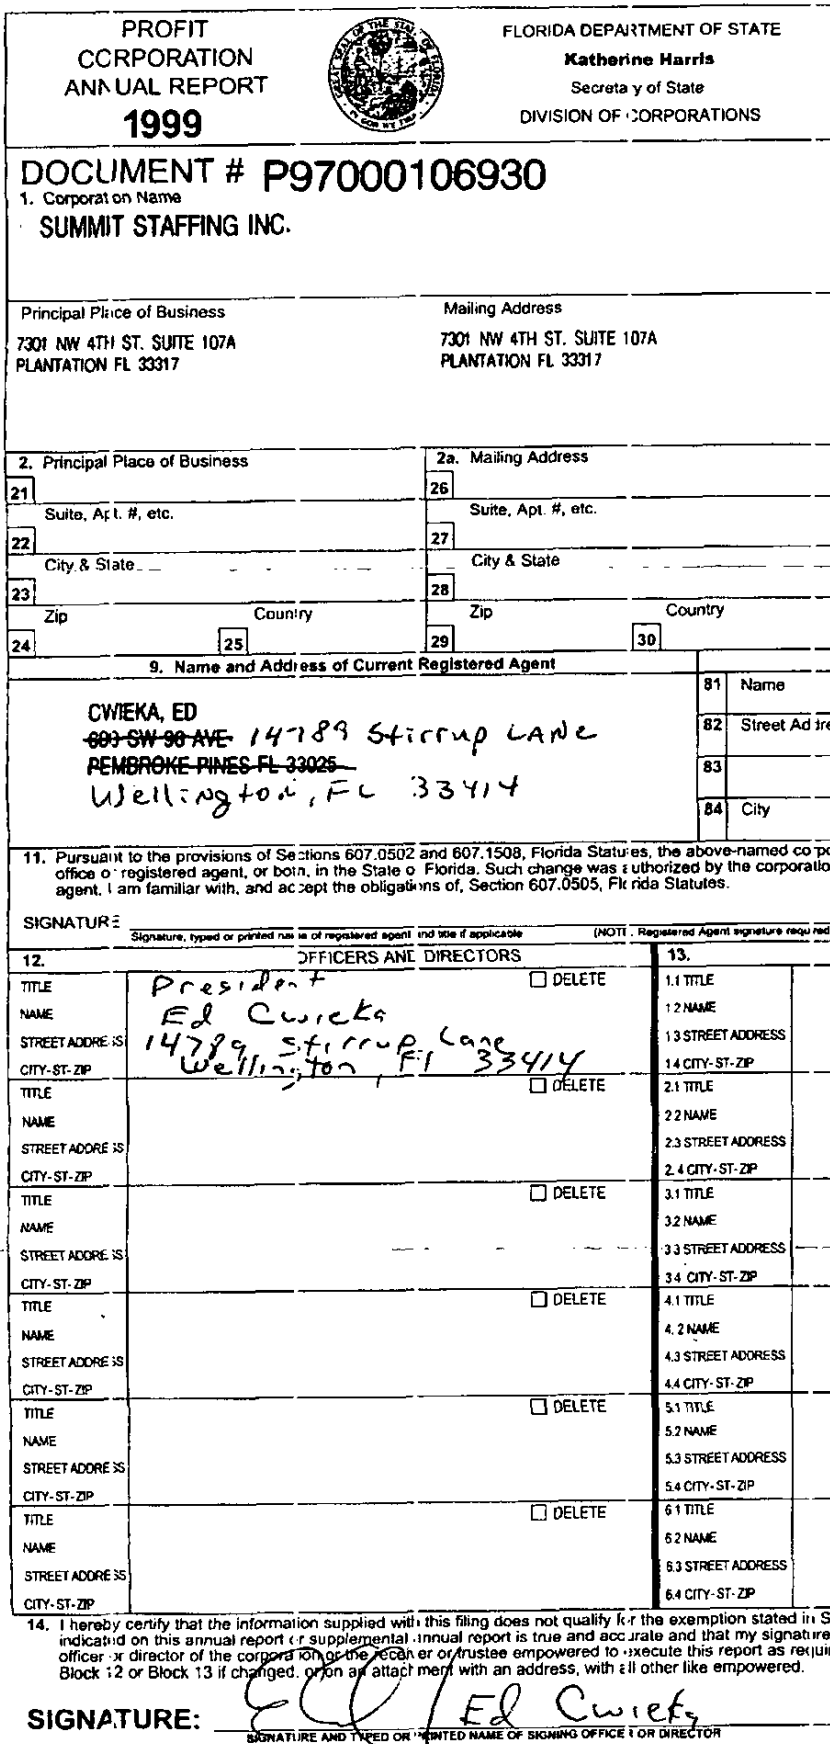 PROFIT
CORPORATION
ANNUAL REPORT
1999
FLORIDA DEPARTMENT OF STATE
Katherine Harris
Secretary of State
DIVISION OF CORPORATIONS
DOCUMENT # P97000106930
1. Corporation Name
SUMMIT STAFFING INC.
Principal Place of Business
Mailing Address
7301 NW 4TH ST. SUITE 107A
PLANTATION FL 33317
7301 NW 4TH ST. SUITE 107A
PLANTATION FL 33317
2. Principal Place of Business
2a. Mailing Address
21
26
Suite, Apt. #, etc.
Suite, Apt. #, etc.
22
27
City & State
City & State
23
28
Zip
Country
Zip
Country
24
25
29
30
9. Name and Address of Current Registered Agent
81 Name
CWIEKA, ED
82 Street Addre
603 SW 96 AVE 14789 Stirrup LANE
PEMBROKE PINES FL 33025
83
Wellington, FL 33414
84 City
11. Pursuant to the provisions of Sections 607.0502 and 607.1508, Florida Statutes, the above-named corpo
office or registered agent, or both, in the State of Florida. Such change was authorized by the corporatio
agent, I am familiar with, and accept the obligations of, Section 607.0505, Florida Statutes.
SIGNATURE
Signature, typed or printed name of registered agent and title if applicable
(NOTE: Registered Agent signature required
12. OFFICERS AND DIRECTORS
13.
TITLE President DELETE
NAME Ed Cwieka
STREET ADDRESS 14789 Stirrup Lane
CITY-ST-ZIP Wellington, Fl 33414
1.1 TITLE
1.2 NAME
1.3 STREET ADDRESS
1.4 CITY-ST-ZIP
TITLE DELETE
NAME
STREET ADDRESS
CITY-ST-ZIP
2.1 TITLE
2.2 NAME
2.3 STREET ADDRESS
2.4 CITY-ST-ZIP
TITLE DELETE
NAME
STREET ADDRESS
CITY-ST-ZIP
3.1 TITLE
3.2 NAME
3.3 STREET ADDRESS
3.4 CITY-ST-ZIP
TITLE DELETE
NAME
STREET ADDRESS
CITY-ST-ZIP
4.1 TITLE
4.2 NAME
4.3 STREET ADDRESS
4.4 CITY-ST-ZIP
TITLE DELETE
NAME
STREET ADDRESS
CITY-ST-ZIP
5.1 TITLE
5.2 NAME
5.3 STREET ADDRESS
5.4 CITY-ST-ZIP
TITLE DELETE
NAME
STREET ADDRESS
CITY-ST-ZIP
6.1 TITLE
6.2 NAME
6.3 STREET ADDRESS
6.4 CITY-ST-ZIP
14. I hereby certify that the information supplied with this filing does not qualify for the exemption stated in S
indicated on this annual report or supplemental annual report is true and accurate and that my signature
officer or director of the corporation or the receiver or trustee empowered to execute this report as requi
Block 12 or Block 13 if changed, or on an attachment with an address, with all other like empowered.
SIGNATURE: Ed Cwieka
SIGNATURE AND TYPED OR PRINTED NAME OF SIGNING OFFICER OR DIRECTOR